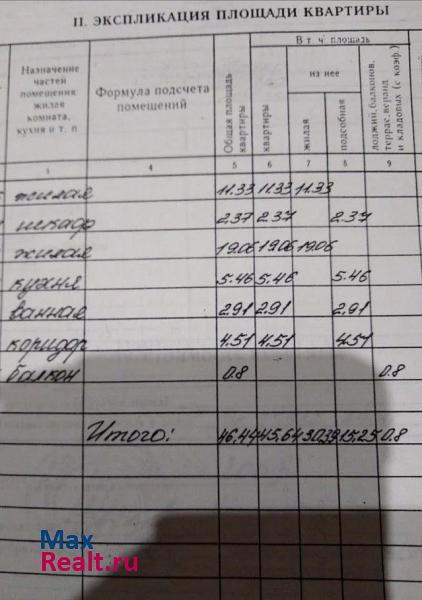 II. ЭКСПЛИКАЦИЯ ПЛОЩАДИ КВАРТИРЫ
Назначение частей помещения жилая комната, кухня и т. п
Формула подсчета помещений
Общая площадь квартиры
В т. ч. площадь
квартиры
из нее
жилая
подсобная
лоджий, балконов, террас, веранд и кладовых (с коэф.)
3 4 5 6 7 8 9
жилая 11.33 11.33 11.33
шкаф 2.37 2.37 2.37
жилая 19.06 19.06 19.06
кухня 5.46 5.46 5.46
ванная 2.91 2.91 2.91
коридор 4.51 4.51 4.51
балкон 0.8 0.8
Итого: 46.44 45.64 30.39 15.25 0.8
Max
Realt.ru